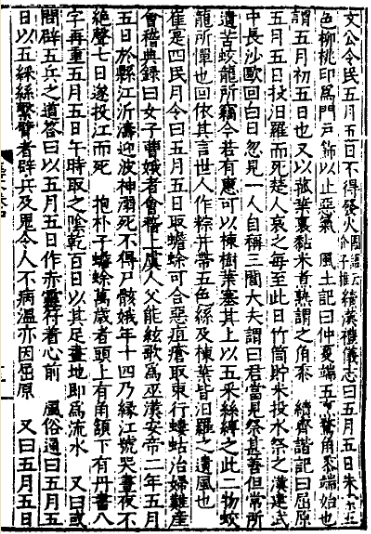 文公令民五月五日不得發火國語云介子推續漢禮儀志曰五月五日朱索五
色柳桃印爲門戶飾以止惡氣　風土記曰仲夏端五烹鶩角黍端始也
謂五月初五日也又以菰葉裹黏米煮熟謂之角黍　續齊諧記曰屈原
五月五日投汨羅而死楚人哀之每至此日竹筒貯米投水祭之漢建武
中長沙歐回白日忽見一人自稱三閭大夫謂曰君當見祭甚善但常所
遺苦蛟龍所竊今若有惠可以楝樹葉塞其上以五采絲縛之此二物蛟
龍所憚也回依其言世人作粽并帶五色絲及楝葉皆汨羅之遺風也
崔寔四民月令曰五月五日取蟾蜍可合惡疽瘡取東行螻蛄治婦難産
會稽典録曰女子曹娥者會稽上虞人父能絃歌爲巫漢安帝二年五月
五日於縣江泝濤迎波神溺死不得尸骸娥年十四乃緣江號哭晝夜不
絶聲七日遂投江而死　抱朴子蟾蜍萬歲者頭上有角頷下有丹書八
字再重五月五日午時取之陰乾百日以其足畫地即爲流水　又曰或
問辟五兵之道荅曰以五月五日作赤靈符著心前　風俗通曰五月五
日以五綵絲繫臂者辟兵及鬼令人不病溫亦因屈原　又曰五月五日